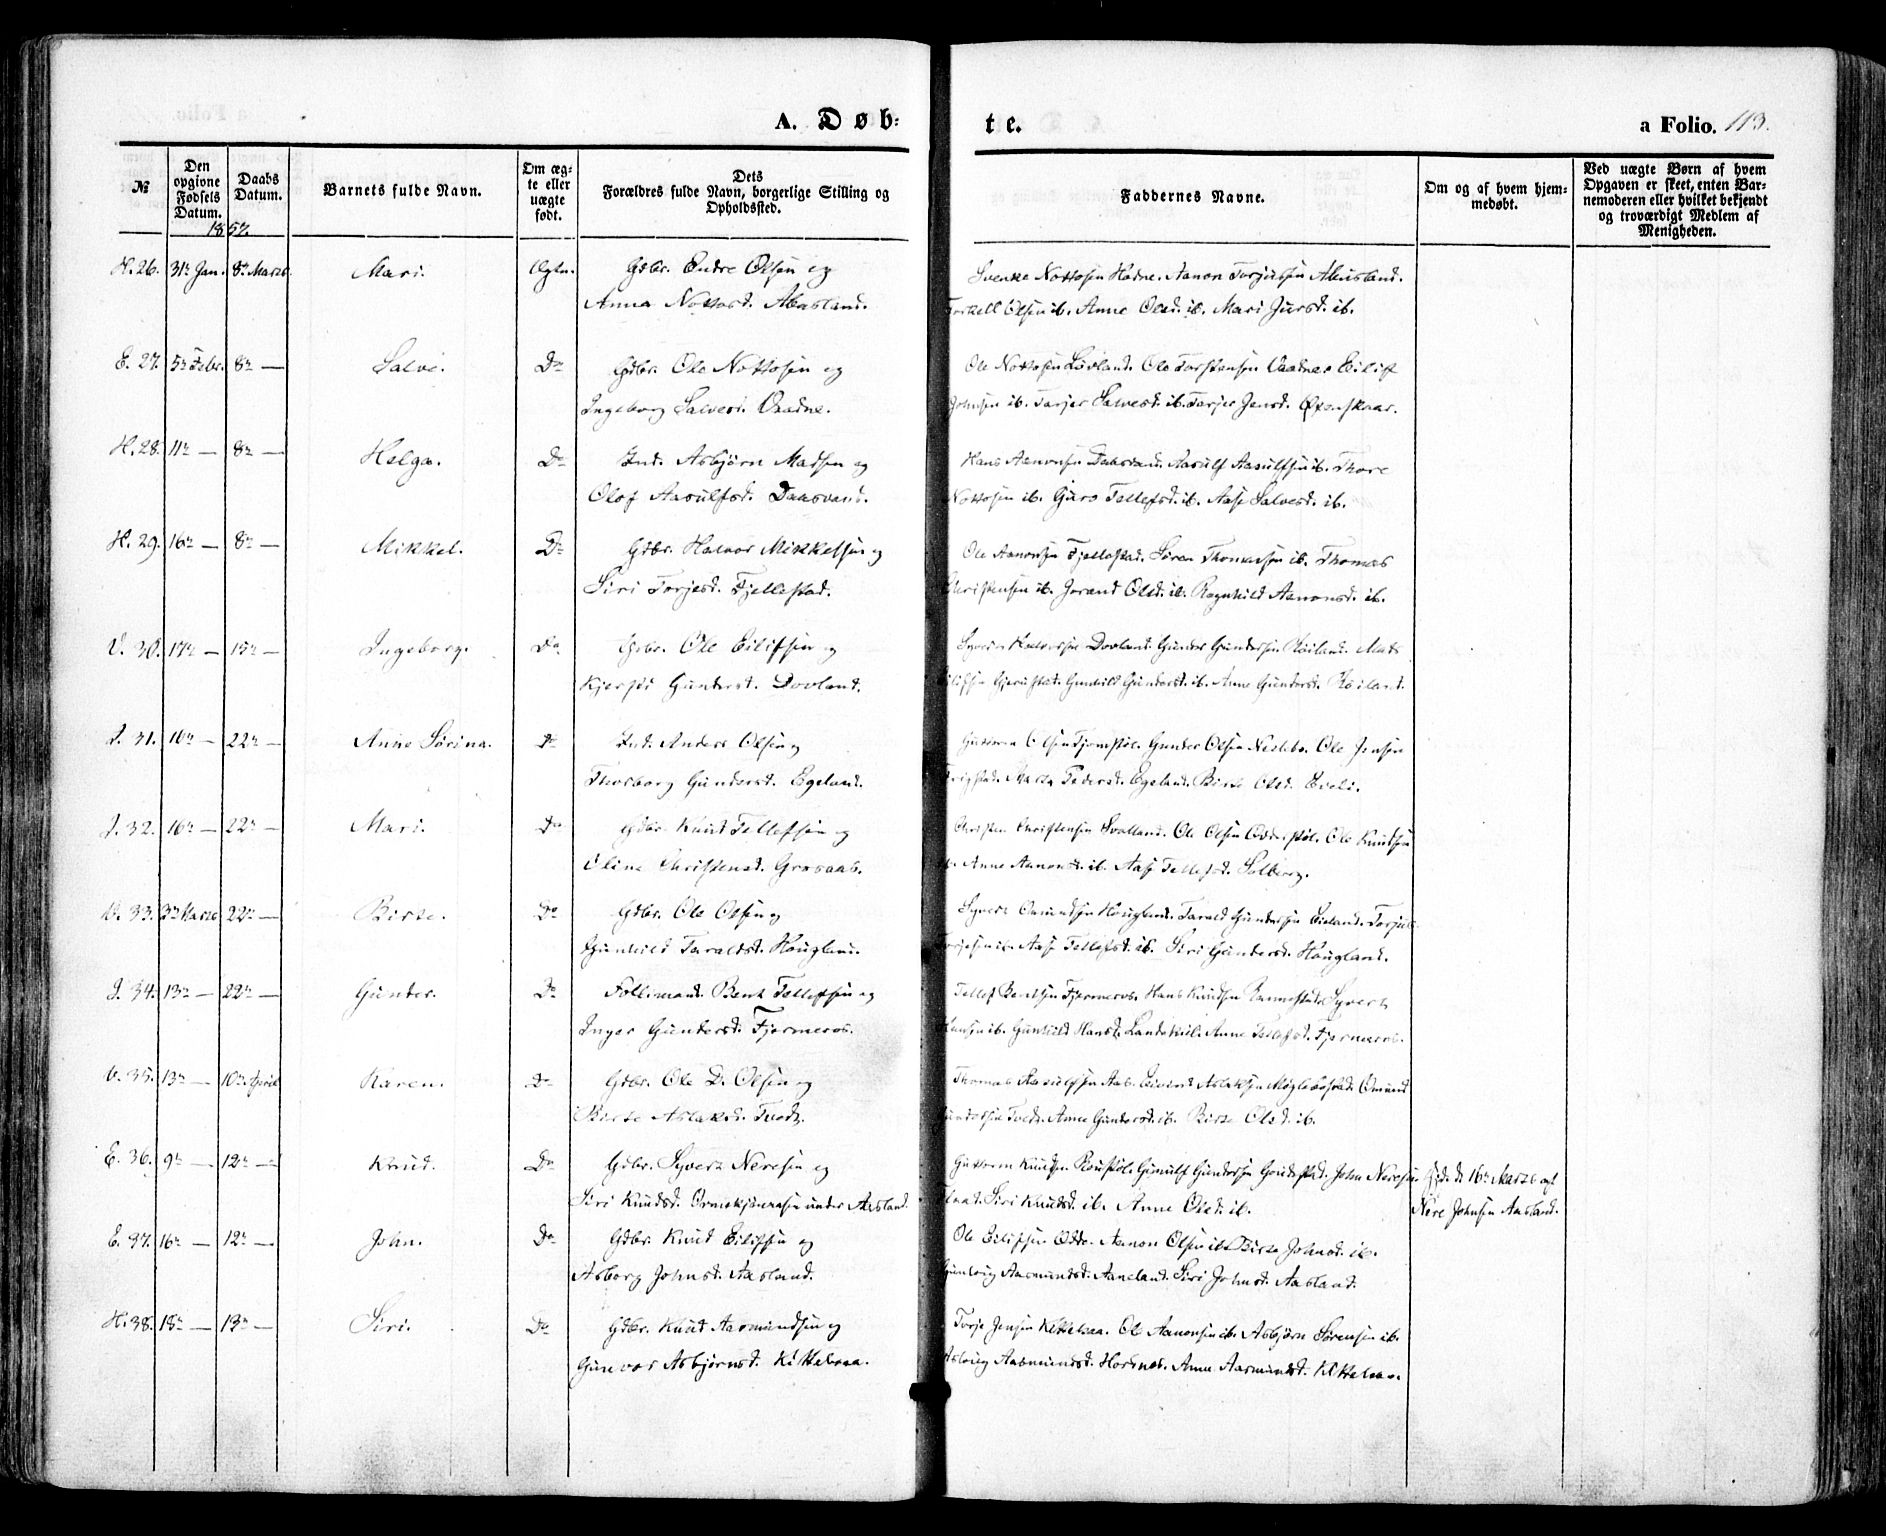 A. Døb-
te.
a Folio. 113.
№
Den opgivne Fødsels Datum.
Daabs Datum.
Barnets fulde Navn.
Om æg-
te eller
uægte
født.
Dets
Forældres fulde Navn, borgerlige Stilling og
Opholdssted.
Faddernes Navne.
Om og af hvem hjem-
medøbt.
Ved uægte Børn af hvem
Opgaven er skeet, enten Bar-
nemoderen eller hvilket bekjendt
og troværdigt Medlem af
Menigheden.
1857.
H. 26. 31te Jan. 8de Marts. Mari. Ægte. Gdbr. Endre Olsen og
Anna Nottosd. Abusland.
Svenke Nottosen Hodne. Aanon Torjussen Abusland.
Torkell Olsen ib. Anne Olsd. ib. Mari Jursd. ib.
E. 27. 5te Febr. 8de — Salve. Do Gdbr. Ole Nottosen og
Ingeborg Salvesd. Vaadne.
Ole Nottosen Løvland. Ole Torstensen Vaadne. Eilif
Johnsen ib. Torjer Salvesd. ib. Torjer Jensd. Øxenskaar.
H. 28. 11te — 8de — Helga. Do Ind. Asbjörn Madsen og
Olof Aasulfsd. Daasvand.
Hans Aanonsen Daasvand. Aasulf Aasulfsen ib. Thore
Nottosen ib. Guro Tellefsd. ib. Aase Salvesd. ib.
H. 29. 16de — 8de — Mikkel. Do Gdbr. Halvor Mikkelsen og
Siri Torjesd. Fjellestad.
Ole Aanonsen Fjellestad. Sören Thomassen ib. Thomas
Christensen ib. Jorand Olsd. ib. Ragnhild Aanonsd. ib.
V. 30. 17de — 15de — Ingeborg. Do Gdbr. Ole Eilifsen og
Kjersti Gundersd. Dovland.
Syvert Halvorsen Dovland. Gunder Gundersen Röiland. Mads
Eilifsen Gjerustad. Gunhild Gundersd. ib. Anne Gundersd. Röiland.
I. 31. 16de — 22de — Anne Sörina. Do Ind. Anders Olsen og
Thorborg Gundersd. Egeland.
Guttorm Olsen Tjomstöl. Gunder Olsen Neslebo. Ole Jensen
Marta Pedersd. Egeland. Birte Olsd. Eveli.
I. 32. 16de — 22de — Mari. Do Gdbr. Knud Tellefsen og
Oline Christensd. Grosaas.
Christen Christensen Svalland. Ole Olsen Odderstöl. Ole Knudsen
ib. Anne Aanonsd. ib. Aase Tellefsd. Solberg.
V. 33. 3de Marts 22de — Birte. Do Gdbr. Ole Olsen og
Gunhild Taraldsd. Hougland.
Syvert Omundsen Hougland. Tarald Gundersen Eieland. Torjus
Torjesen ib. Aase Tellefsd. ib. Siri Gundersd. Hougland.
I. 34. 13de — 22de — Gunder. Do Föllemand. Bent Tellefsen og
Inger Gundersd. Fjermeros.
Tellef Bentsen Fjermeros. Hans Knudsen Rannestad. Syvert
Hansen ib. Gunhild Hansd. Landskiil. Anne Tellefsd. Fjermeros.
V. 35. 13de — 10de April Karen. Do Gdbr. Ole D. Olsen og
Birte Aslaksd. Tvedt.
Thomas Aasulfsen Aas. Eivind Aslaksen Möglebostad. Omund
Gundersen Tvedt. Anne Gundersd. ib. Birte Olsd. ib.
E. 36. 9de — 12te — Knud. Do Gdbr. Syvert Neresen og
Siri Knudsd. Ormekjærraasen under Aasland.
Guttorm Knudsen Roustöl. Gunulf Gundersen Goudestad. John Neresen
Flaat. Siri Knudsd. ib. Anne Olsd. ib.
Hjd. d. 16de Marts af
Nere Johnsen Aasland.
E. 37. 16de — 12te — John. Do Gdbr. Knud Eilifsen og
Asborg Johnsd. Aasland.
Ole Eilifsen Odde. Aanon Olsen ib. Birte Johnsd. ib.
Gunborg Aasmundsd. Aaneland. Siri Johnsd. Aasland.
H. 38. 18de — 13de — Siri. Do Gdbr. Knud Aasmundsen og
Gunvor Asbjörnsd. Kittelsaa.
Torje Jensen Kittelsaa. Ole Aanonsen ib. Asbjörn Sörensen ib.
Aslaug Aasmundsd. Horsnes. Anne Aasmundsd. Kittelsaa.